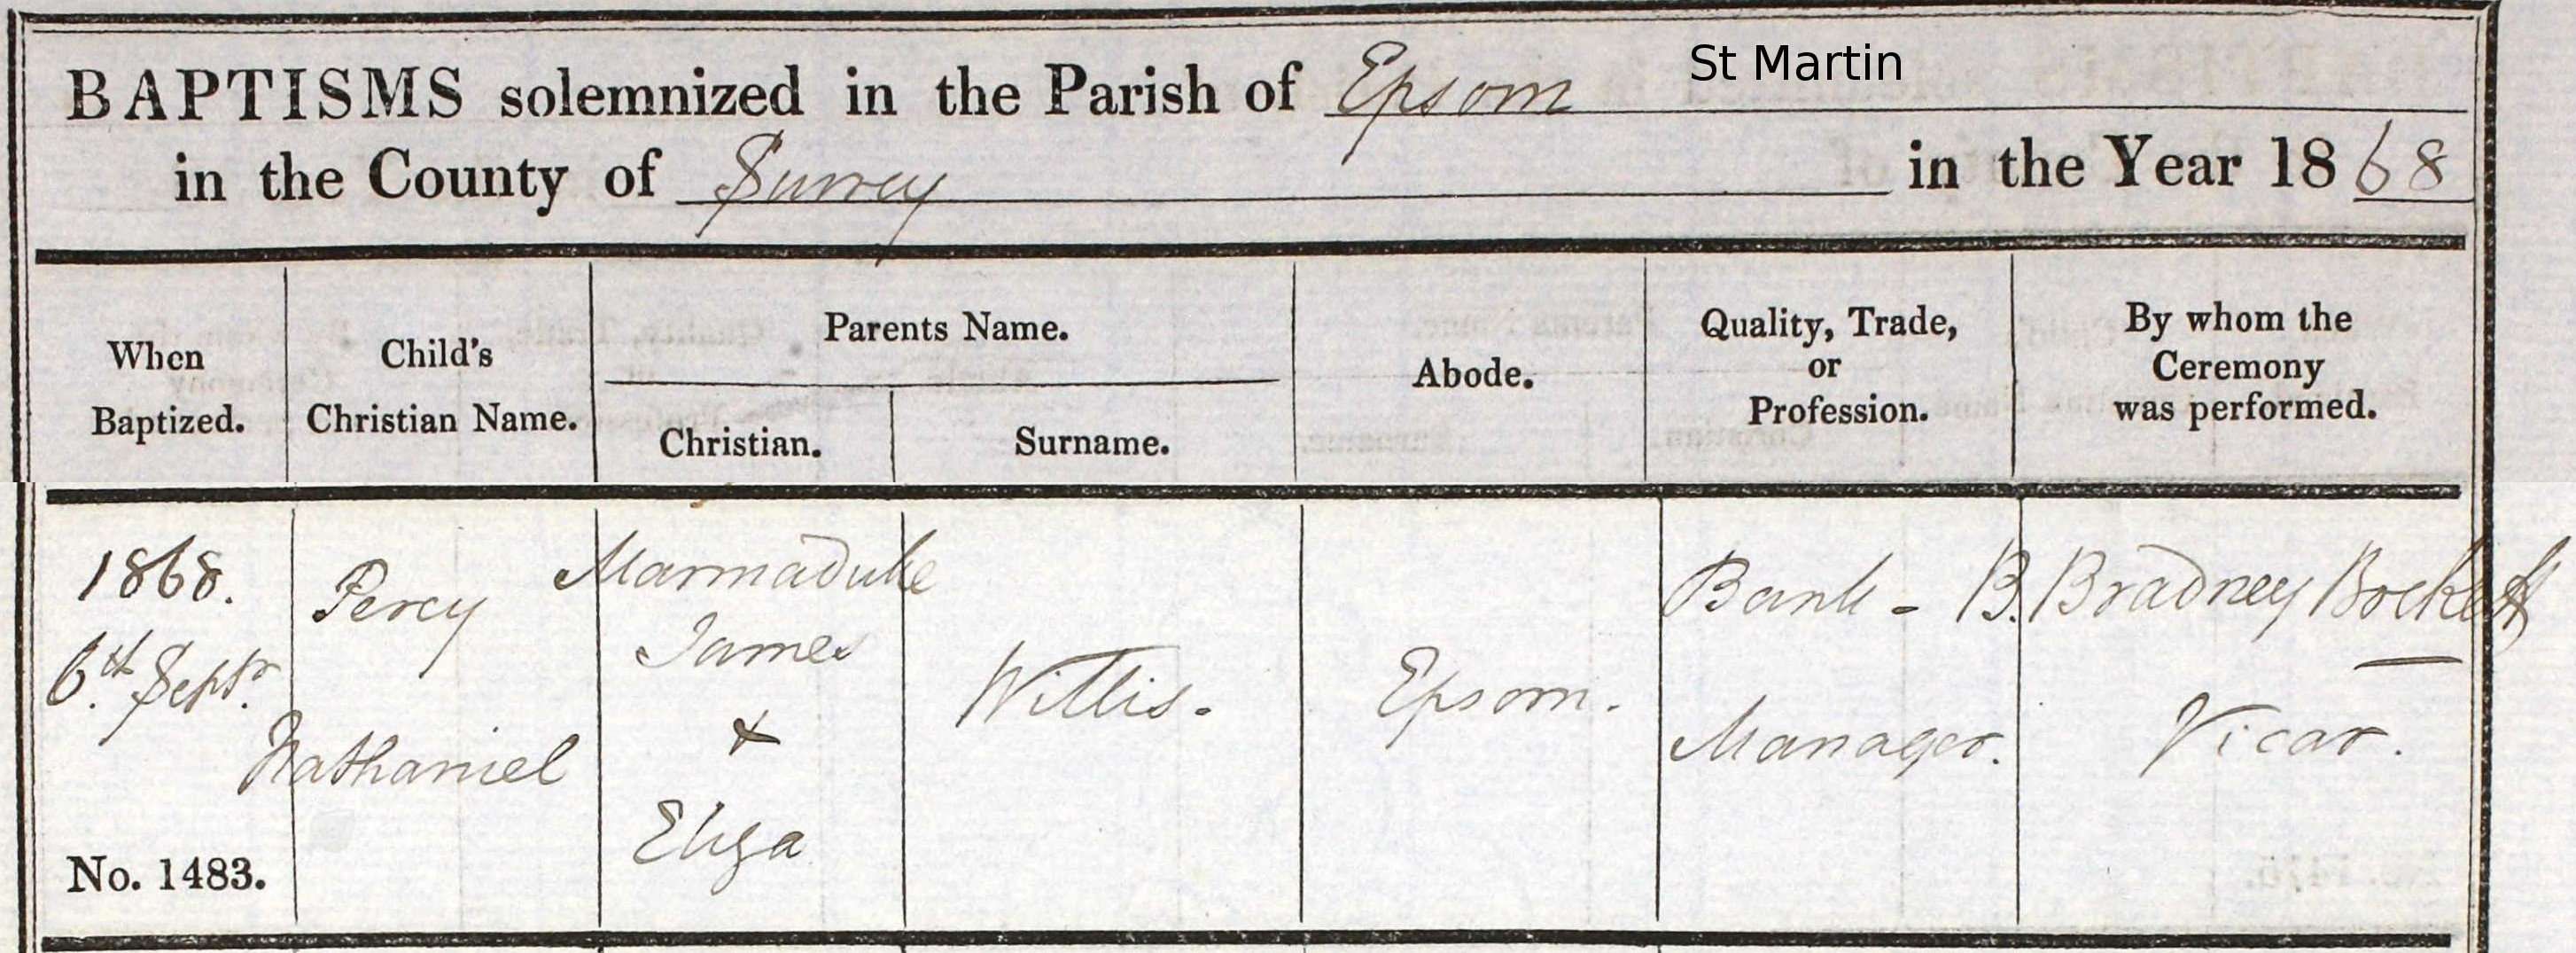 BAPTISMS solemnized in the Parish of Epsom St Martin
in the County of Surrey in the Year 1868
When Baptized.
Child's Christian Name.
Parents Name.
Christian.
Surname.
Abode.
Quality, Trade, or Profession.
By whom the Ceremony was performed.
1868.
6th Septr.
No. 1483.
Percy
Nathaniel
Marmaduke
James
&
Eliza
Willis.
Epsom.
Bank-
Manager.
B. Bradney Bockett
Vicar.